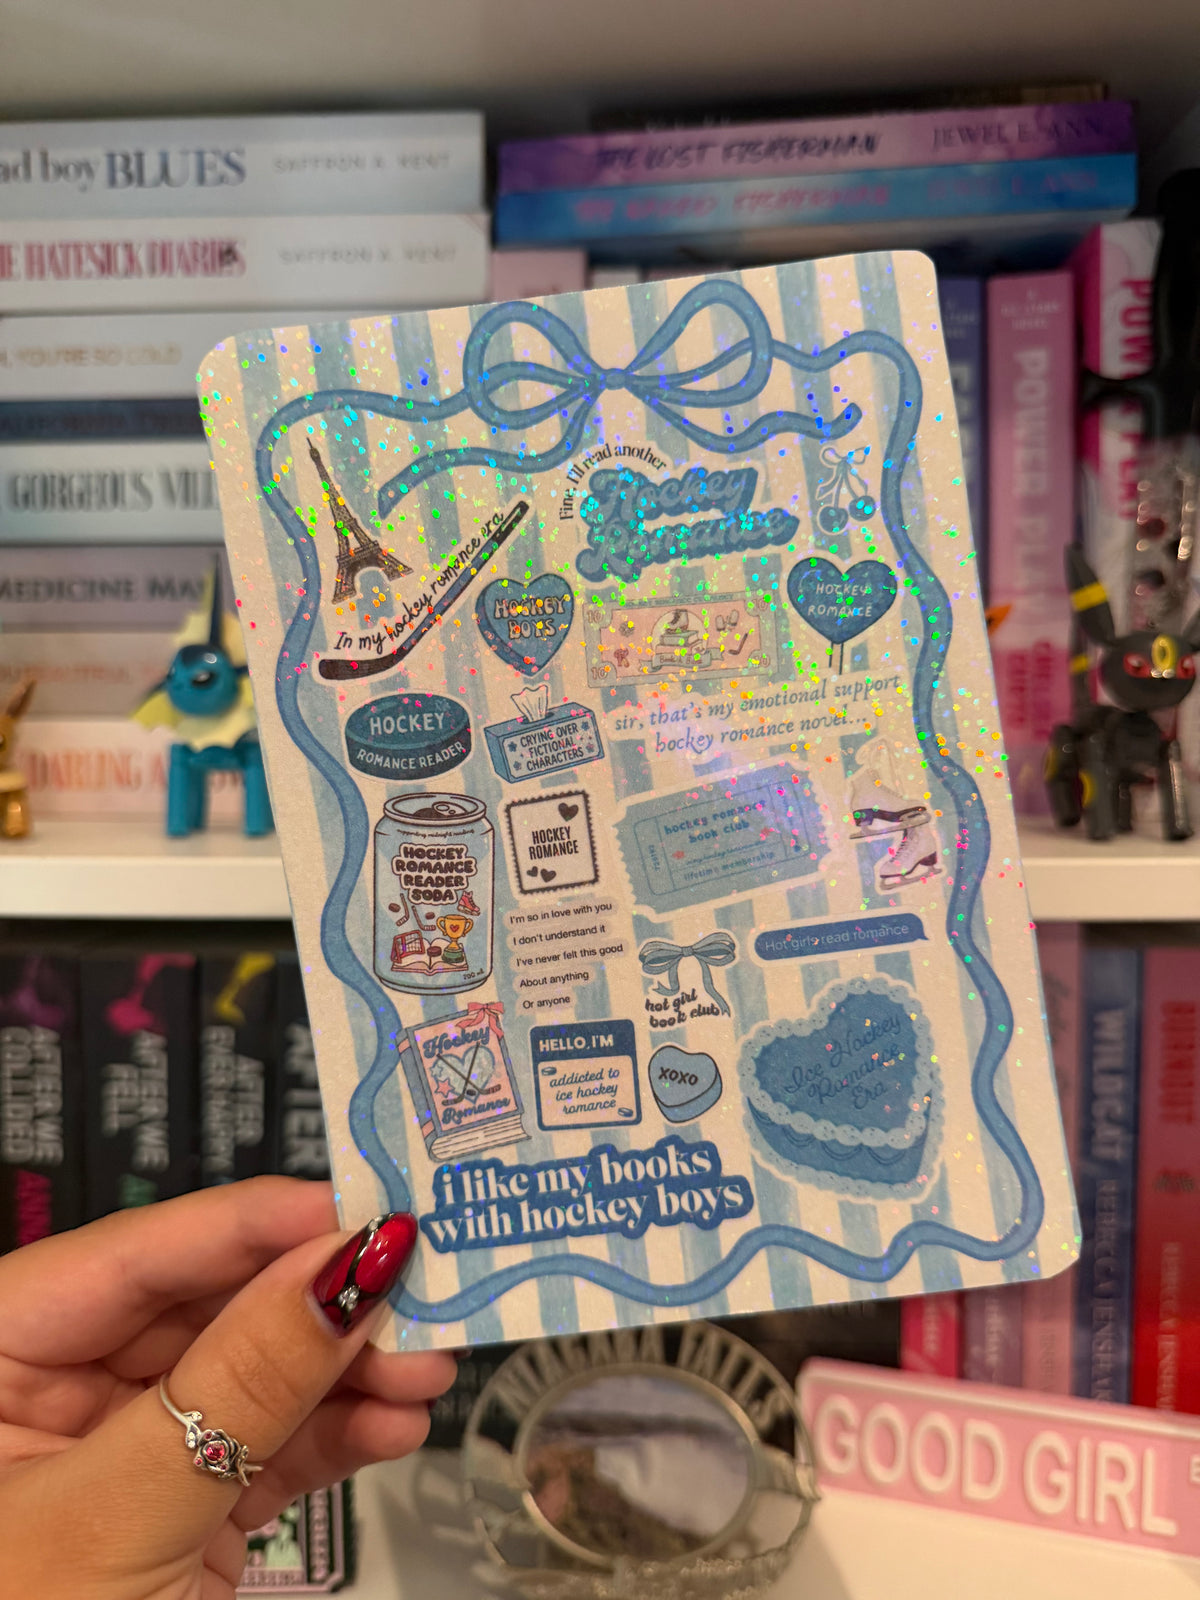 ad boy BLUES SAFFRON A. KENT
E HATESICK DIARIES SAFFRON A. KENT
, YOU'RE SO COLD
GORGEOUS VILL
MEDICINE MA
DARLING A
THE LOST FISHERMAN JEWEL E. ANN
FISHERMAN JEWEL E. ANN
POWER PLAY
Fine, I'll read another
Hockey
Romance
In my hockey romance era
HOCKEY
BOYS
HOCKEY
ROMANCE
HOCKEY
ROMANCE READER
CRYING OVER
FICTIONAL
CHARACTERS
sir, that's my emotional support
hockey romance novel...
supporting midnight reading
HOCKEY
ROMANCE
READER
SODA
200 ml
HOCKEY
ROMANCE
hockey romance
book club
lifetime membership
I'm so in love with you
I don't understand it
I've never felt this good
About anything
Or anyone
Hot girls read romance
hot girl
book club
Hockey
Romance
HELLO, I'M
addicted to
ice hockey
romance
XOXO
Ice Hockey
Romance
Era
i like my books
with hockey boys
AFTER WE COLLIDED ANN
AFTER WE FELL
AFTER
AFTER
WILDCAT REBECCA JENSHAK
REBECCA JENSHAK
NIAGARA FALLS
GOOD GIRL